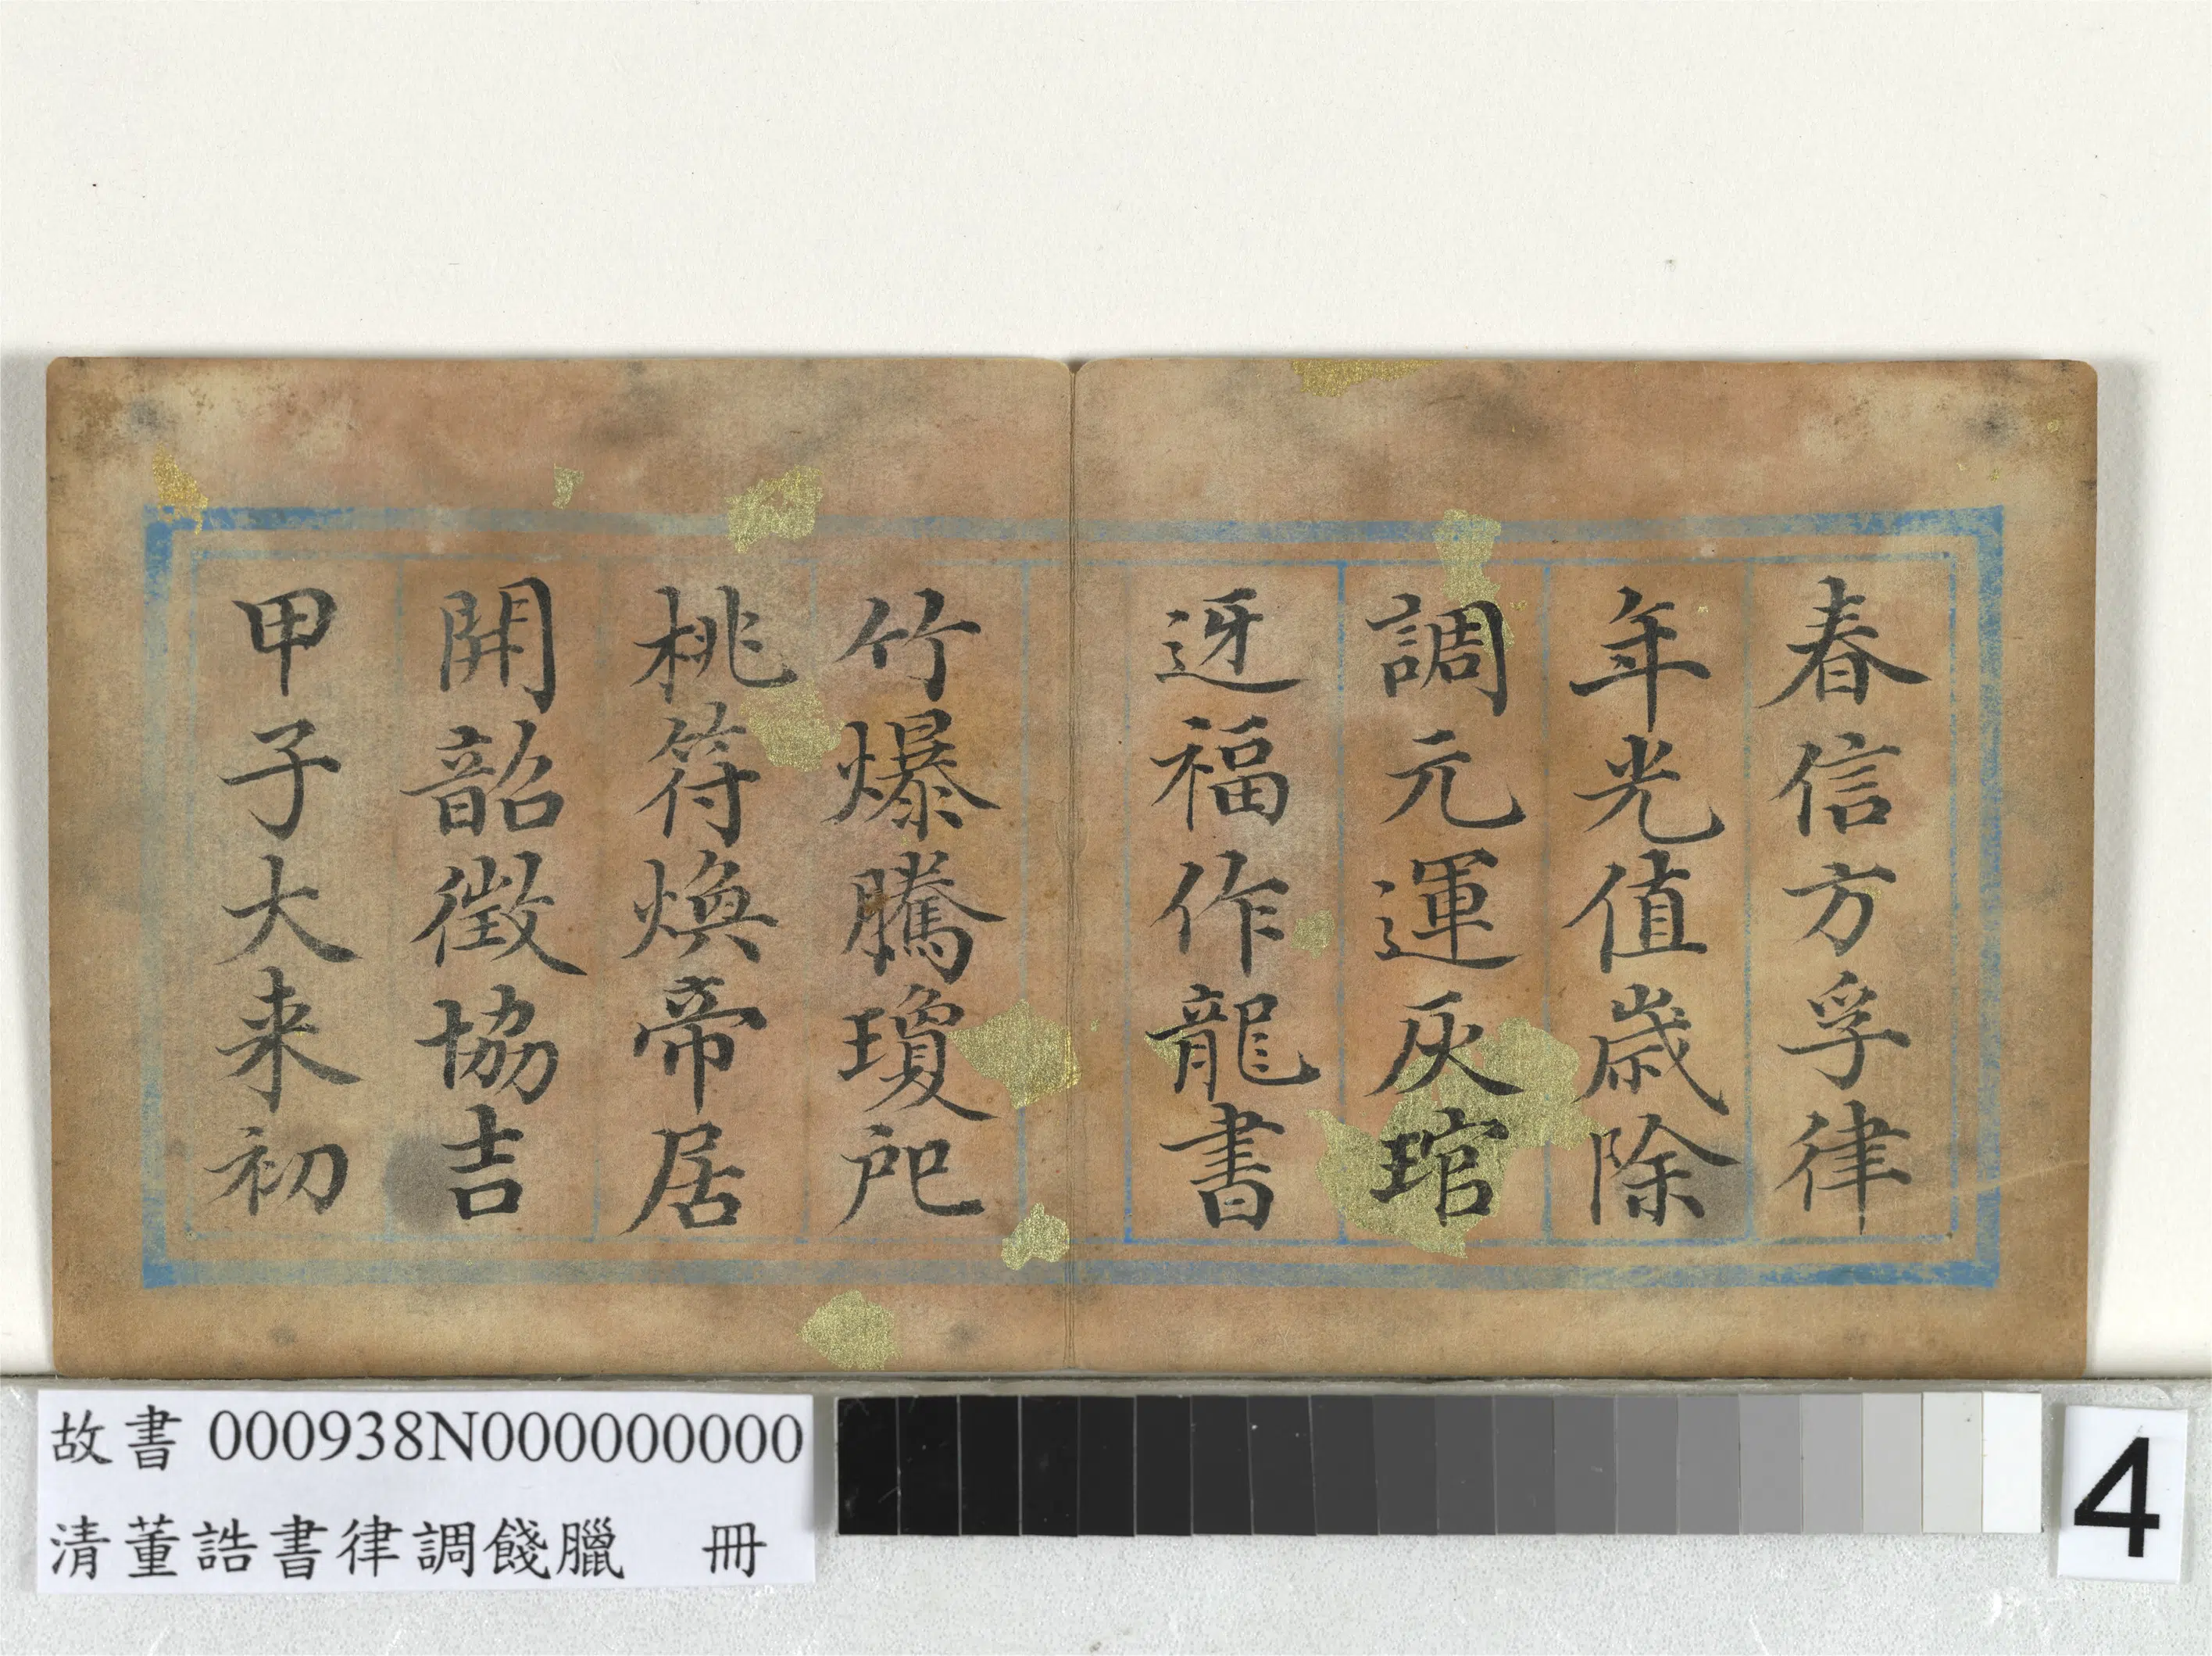 春信方孚律
年光值歲除
調元運灰琯
迓福作龍書
竹爆騰瓊戺
桃符煥帝居
開韶徵協吉
甲子大来初
故書 000938N000000000
清董誥書律調餞臘 冊
4